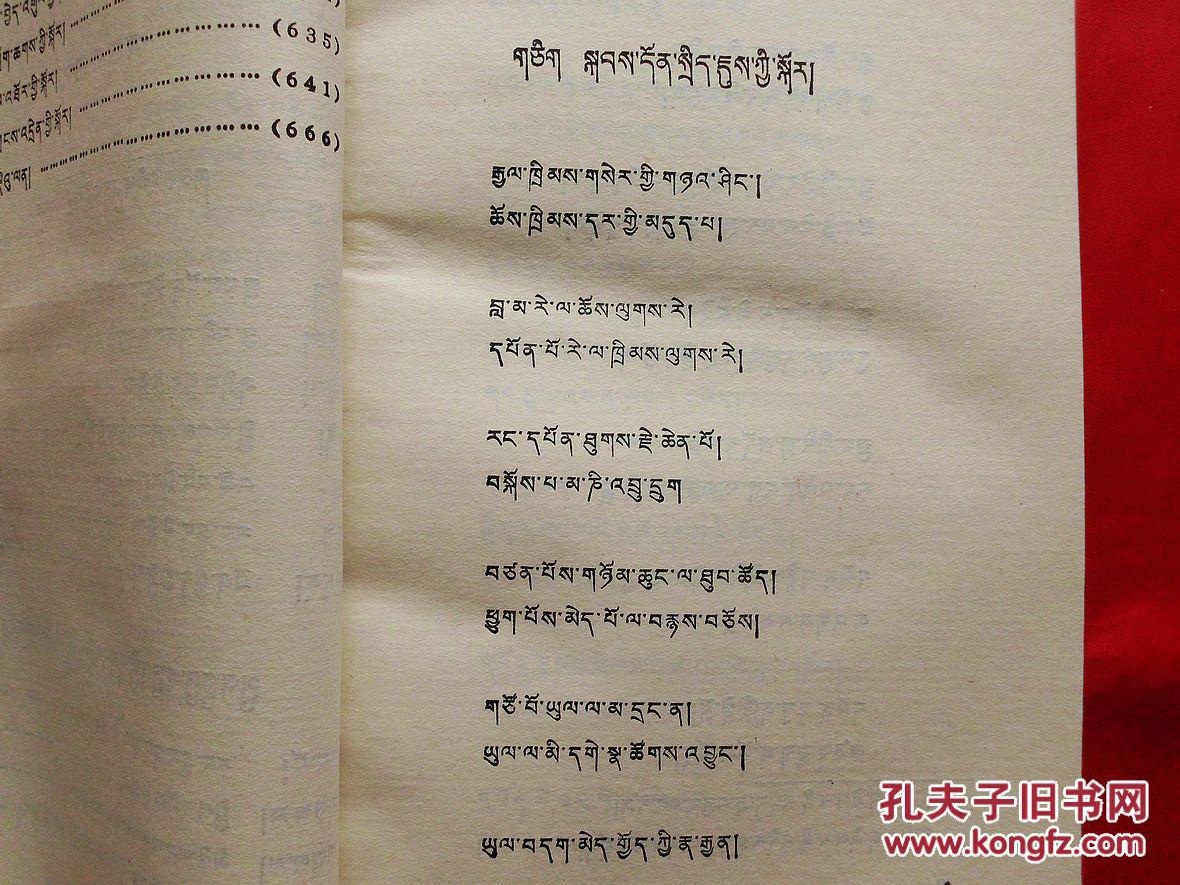 (635)
(641)
(666)
གཅིག སྐབས་དོན་སྲིད་ཇུས་ཀྱི་སྐོར།
རྒྱལ་ཁྲིམས་གསེར་གྱི་གཉའ་ཤིང་།
ཆོས་ཁྲིམས་དར་གྱི་མདུད་པ།
བླ་མ་རེ་ལ་ཆོས་ལུགས་རེ།
དཔོན་པོ་རེ་ལ་ཁྲིམས་ལུགས་རེ།
རང་དཔོན་ཐུགས་རྗེ་ཆེན་པོ།
བསྐོས་པ་མ་ཎི་འབྲུ་དྲུག
བཙན་པོས་གཉོམ་ཆུང་ལ་ཐུབ་ཚོད།
ཕྱུག་པོས་མེད་པོ་ལ་བརྙས་བཅོས།
གཙོ་བོ་ཡུལ་ལ་མ་དྲང་ན།
ཡུལ་ལ་མི་དགེ་སྣ་ཚོགས་འབྱུང་།
ཡུལ་བདག་མེད་གྱོད་ཀྱི་རྩ་རྒྱན།
孔夫子旧书网
www.kongfz.com